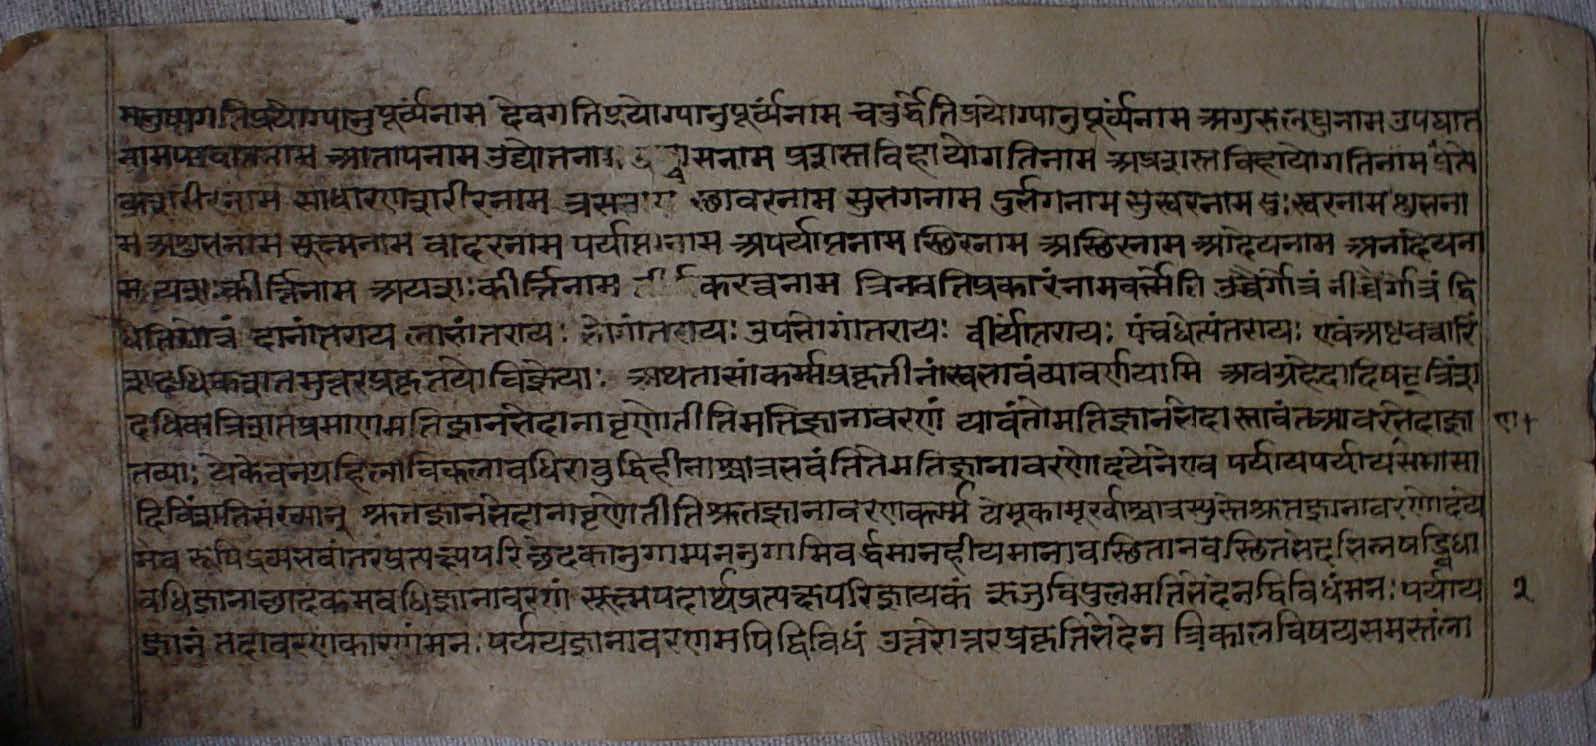 मनुष्यगतिप्रयोग्यानुपूर्व्यनाम देवगतिप्रयोग्यानुपूर्व्यनाम चतुर्द्धेतिप्रयोग्यानुपूर्व्यनाम अगुरुलघुनाम उपघात
नाम आतापनाम उद्योतनाम प्रशस्तविहायोगतिनाम अप्रशस्तविहायोगतिनाम प्रत्ये
कशरीरनाम साधारणशरीरनाम स्थावरनाम सुभगनाम दुर्भगनाम सुस्वरनाम दुःस्वरनाम शुभना
म अशुभनाम सूक्ष्मनाम वादरनाम पर्याप्तनाम अपर्याप्तनाम स्थिरनाम अस्थिरनाम आदेयनाम अनादेयना
म यशःकीर्त्तिनाम अयशःकीर्त्तिनाम करत्वनाम त्रिनवतिप्रकारंनामकर्म्मेति उच्चैर्गोत्रं नीचैर्गोत्रं द्वि
धेतिगोत्रं दानांतराय लाभांतरायः भोगांतरायः उपभोगांतरायः वीर्यांतरायः पंचधेत्यंतरायः एवंअष्टचत्वारिं
शदधिकशतमुत्तरप्रकृतयोविज्ञेयाः अथतासांकर्म्मप्रकृतीनांस्वभावंव्यावर्णयामि अवग्रहेदादिषट्त्रिंश
दधिकत्रिशतप्रमाणमतिज्ञानभेदानावृणोतीतिमतिज्ञानावरणं यावंतोमतिज्ञानभेदास्तावंतआवरभेदाज्ञा
तव्याः बधिराबुद्धिहीनाश्चात्रभवंतितेमतिज्ञानावरणोदयेनेएव पर्यायपर्यायसमासा
दिविंशतिसंख्यान् श्रुतज्ञानभेदानावृणोतीतिश्रुतज्ञानावरणकर्म्म येमूकामूर्खाश्चात्रस्युस्तेश्रुतज्ञानावरणोदये
नैव रूपिद्रव्यभवांतरप्रत्यक्षपरिछेदकानुगाम्यननुगामिवर्द्धमानहीयमानावस्थितानवस्थितभेदभिन्नषड्विधा
वधिज्ञानाछादकमवधिज्ञानावरणं सूक्ष्मपदार्थप्रत्यक्षपरिज्ञायकं ऋजुविपुलमतिभेदेनद्विविधंमनःपर्याय २
ज्ञानं तदावरणकारणंमनःपर्ययज्ञानावरणमपिद्विविधं उत्तरोत्तरप्रकृतिभेदेन त्रिकालविषयसमस्तंला